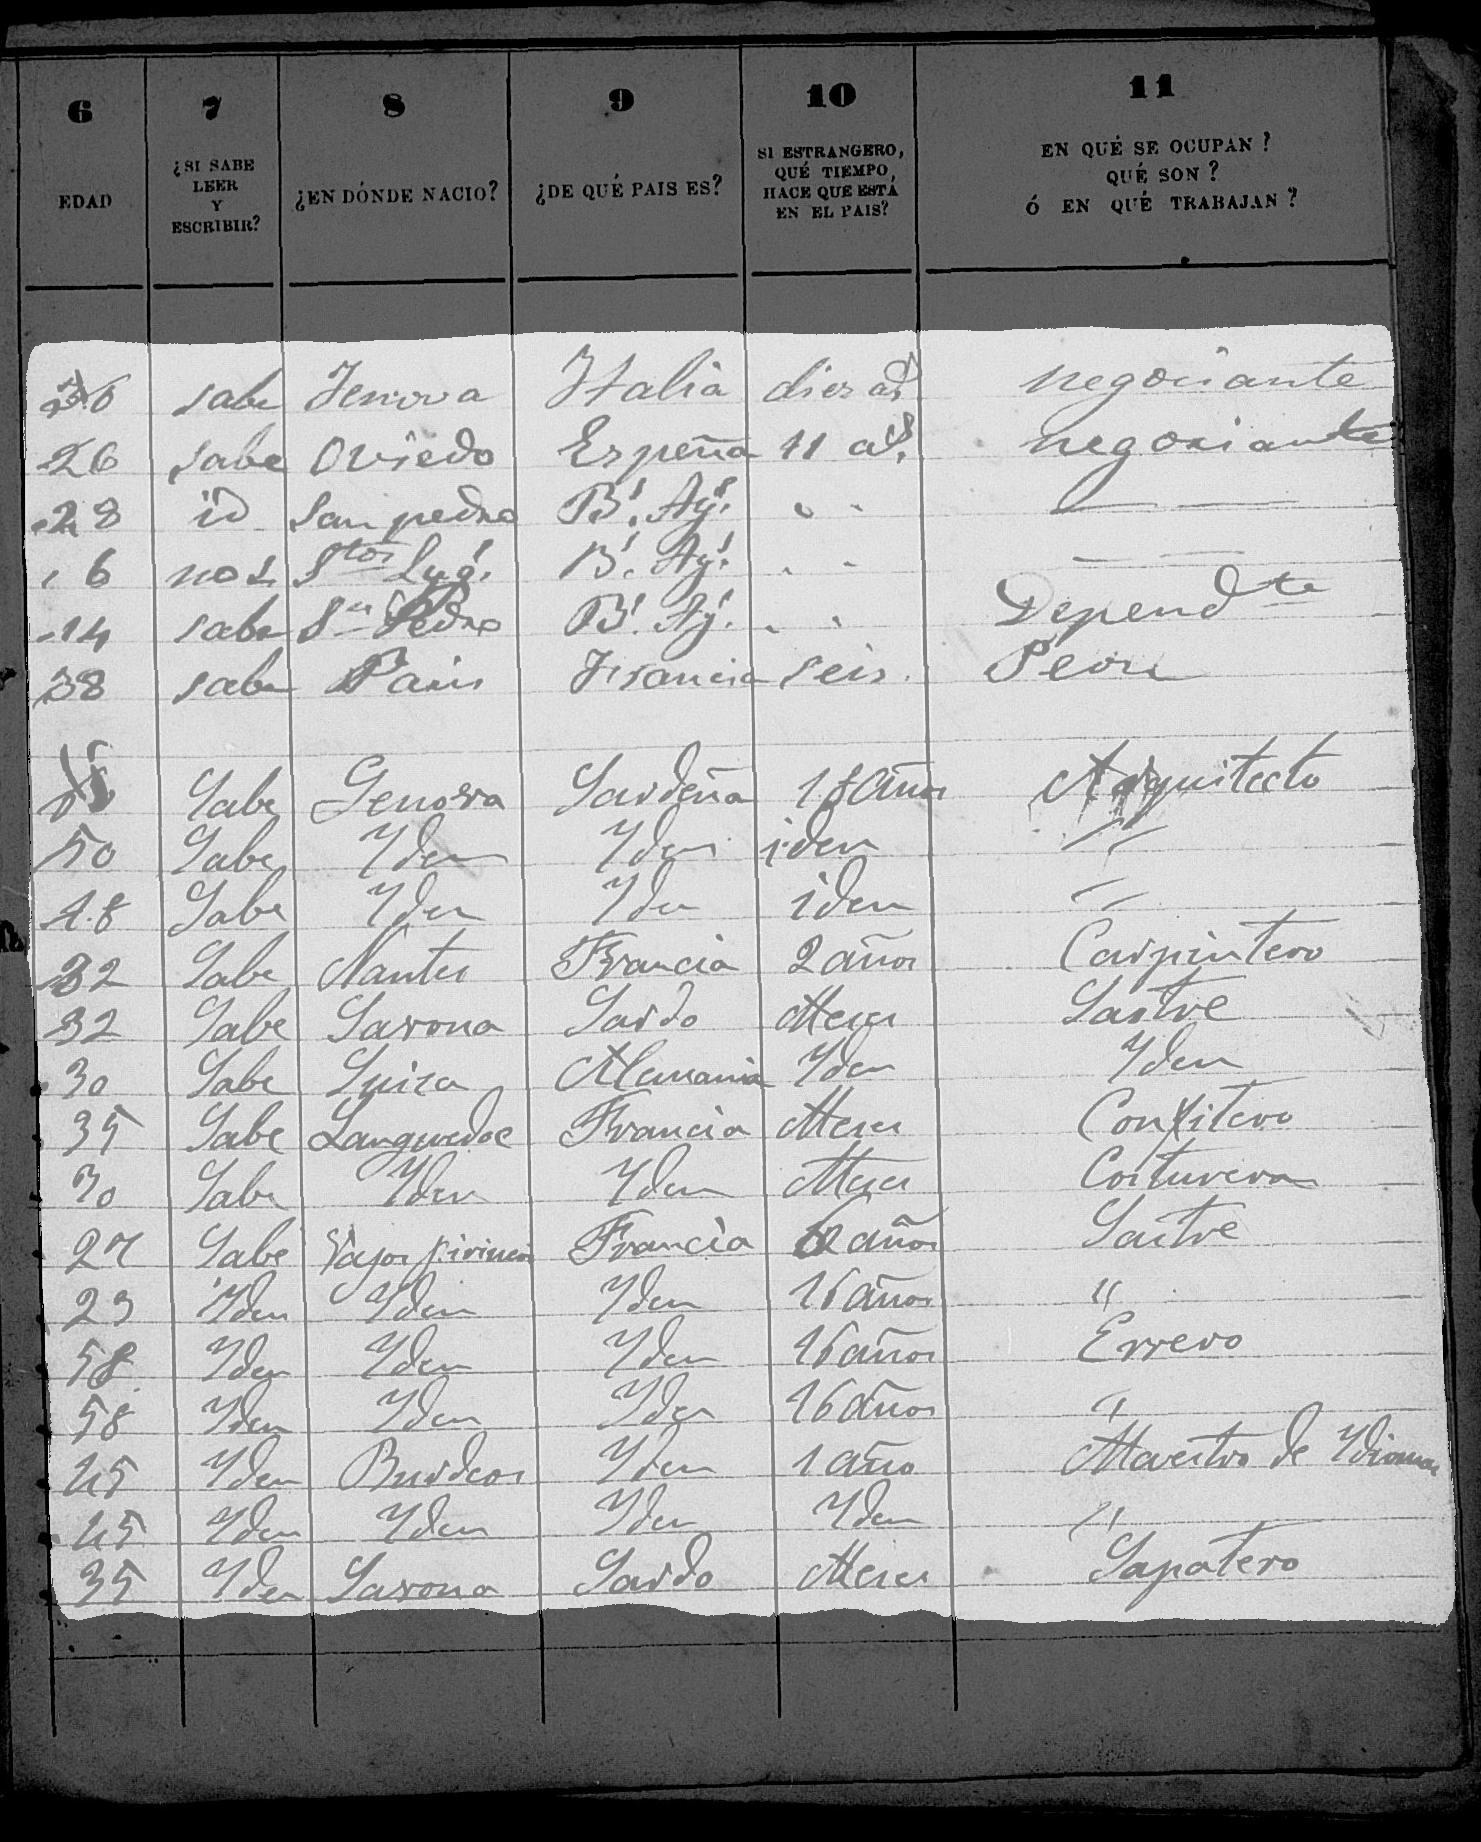 6 7 8 9 10 11
EDAD ¿SI SABE LEER Y ESCRIBIR? ¿EN DÓNDE NACIO? ¿DE QUÉ PAIS ES? SI ESTRANGERO, QUÉ TIEMPO, HACE QUE ESTÁ EN EL PAIS? EN QUÉ SE OCUPAN? QUÉ SON? Ó EN QUÉ TRABAJAN?
36 sabe Jenova Italia dies as negociante
26 sabe Oviedo Espeña 11 as negociante
28 id San pedro Bs. Ays. " —
6 no s Stos Lugs. Bs. Ays. " —
14 sabe Sn Pedro Bs. Ays. " Dependte
38 sabe Paris Francia seis Peon
Sabe Genova Sardeña 18 años Arquitecto
50 Sabe Yden Yden iden "
18 Sabe Yden Yden iden "
32 Sabe Nantes Francia 2 años Carpintero
32 Sabe Savona Sardo Meses Sastre
30 Sabe Suiza Alemania Yden Yden
35 Sabe Languedoc Francia Meses Confitero
30 Sabe Yden Yden Meses Costurera
27 Sabe Vajos pirineos Francia años Sastre
23 Yden Yden Yden 16 años "
58 Yden Yden Yden 16 años Errero
58 Yden Yden Yden 16 años "
45 Yden Burdeos Yden 1 año Maestro de Ydiomas
45 Yden Yden Yden Yden "
35 Yden Savona Sardo Meses Sapatero